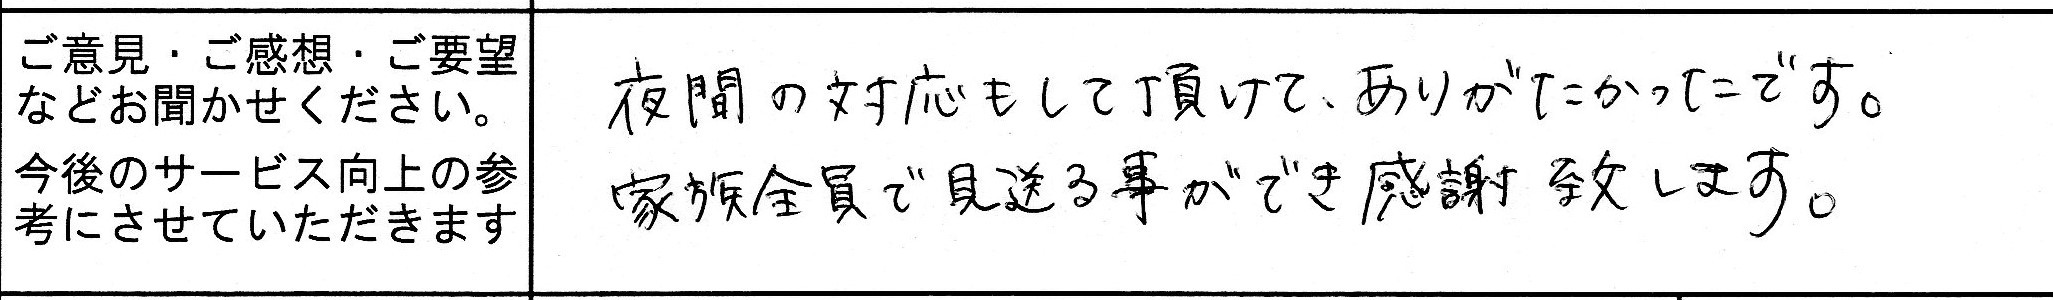 ご意見・ご感想・ご要望
などお聞かせください。
今後のサービス向上の参
考にさせていただきます
夜間の対応もして頂けて、ありがたかったです。
家族全員で見送る事ができ感謝致します。